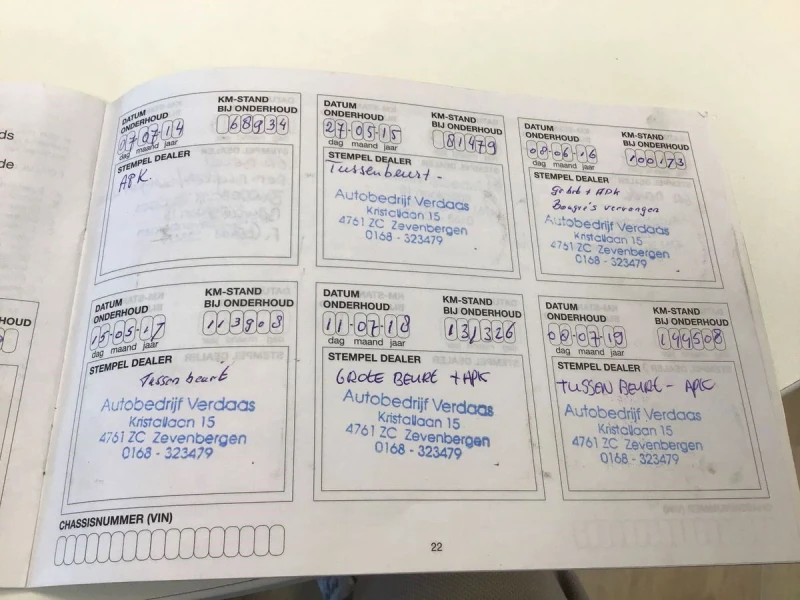 ds
de
HOUD
DATUM
ONDERHOUD
KM-STAND
BIJ ONDERHOUD
07 07 14
68934
dag maand jaar
STEMPEL DEALER
APK.
DATUM
ONDERHOUD
KM-STAND
BIJ ONDERHOUD
27-05-15
81479
dag maand jaar
STEMPEL DEALER
Tussenbeurt -
Autobedrijf Verdaas
Kristallaan 15
4761 ZC Zevenbergen
0168 - 323479
DATUM
ONDERHOUD
KM-STAND
BIJ ONDERHOUD
08-06-16
100173
dag maand jaar
STEMPEL DEALER
+ APK
Bougie's vervangen
Autobedrijf Verdaas
Kristallaan 15
4761 ZC Zevenbergen
0168 - 323479
DATUM
ONDERHOUD
KM-STAND
BIJ ONDERHOUD
15-05-17
113908
dag maand jaar
STEMPEL DEALER
Tussen beurt
Autobedrijf Verdaas
Kristallaan 15
4761 ZC Zevenbergen
0168 - 323479
DATUM
ONDERHOUD
KM-STAND
BIJ ONDERHOUD
11-07-18
131326
dag maand jaar
STEMPEL DEALER
GROTE BEURT + APK
Autobedrijf Verdaas
Kristallaan 15
4761 ZC Zevenbergen
0168 - 323479
DATUM
ONDERHOUD
KM-STAND
BIJ ONDERHOUD
08-07-19
144508
dag maand jaar
STEMPEL DEALER
TUSSEN BEURT - APK
Autobedrijf Verdaas
Kristallaan 15
4761 ZC Zevenbergen
0168 - 323479
CHASSISNUMMER (VIN)
22